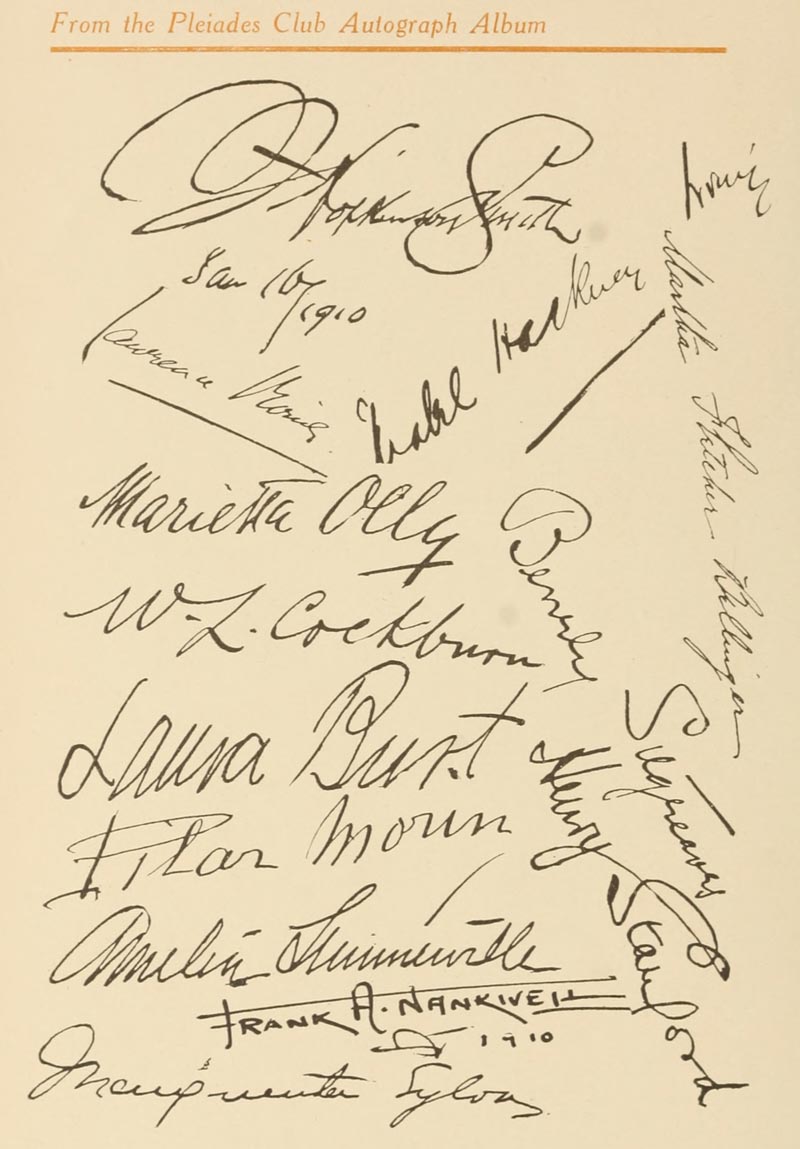 From the Pleiades Club Autograph Album
F. Hopkinson Smith
Jan 16/1910
Mabel Hackney
Laurence Irving
Martha Fletcher Bellinger
Marietta Olly
Beverly Sitgreaves
W. L. Cockburn
Laura Burt
Henry Stanford
Pilar Morin
Amelia Summerville
FRANK A. NANKIVELL
1910
Marguerita Sylva